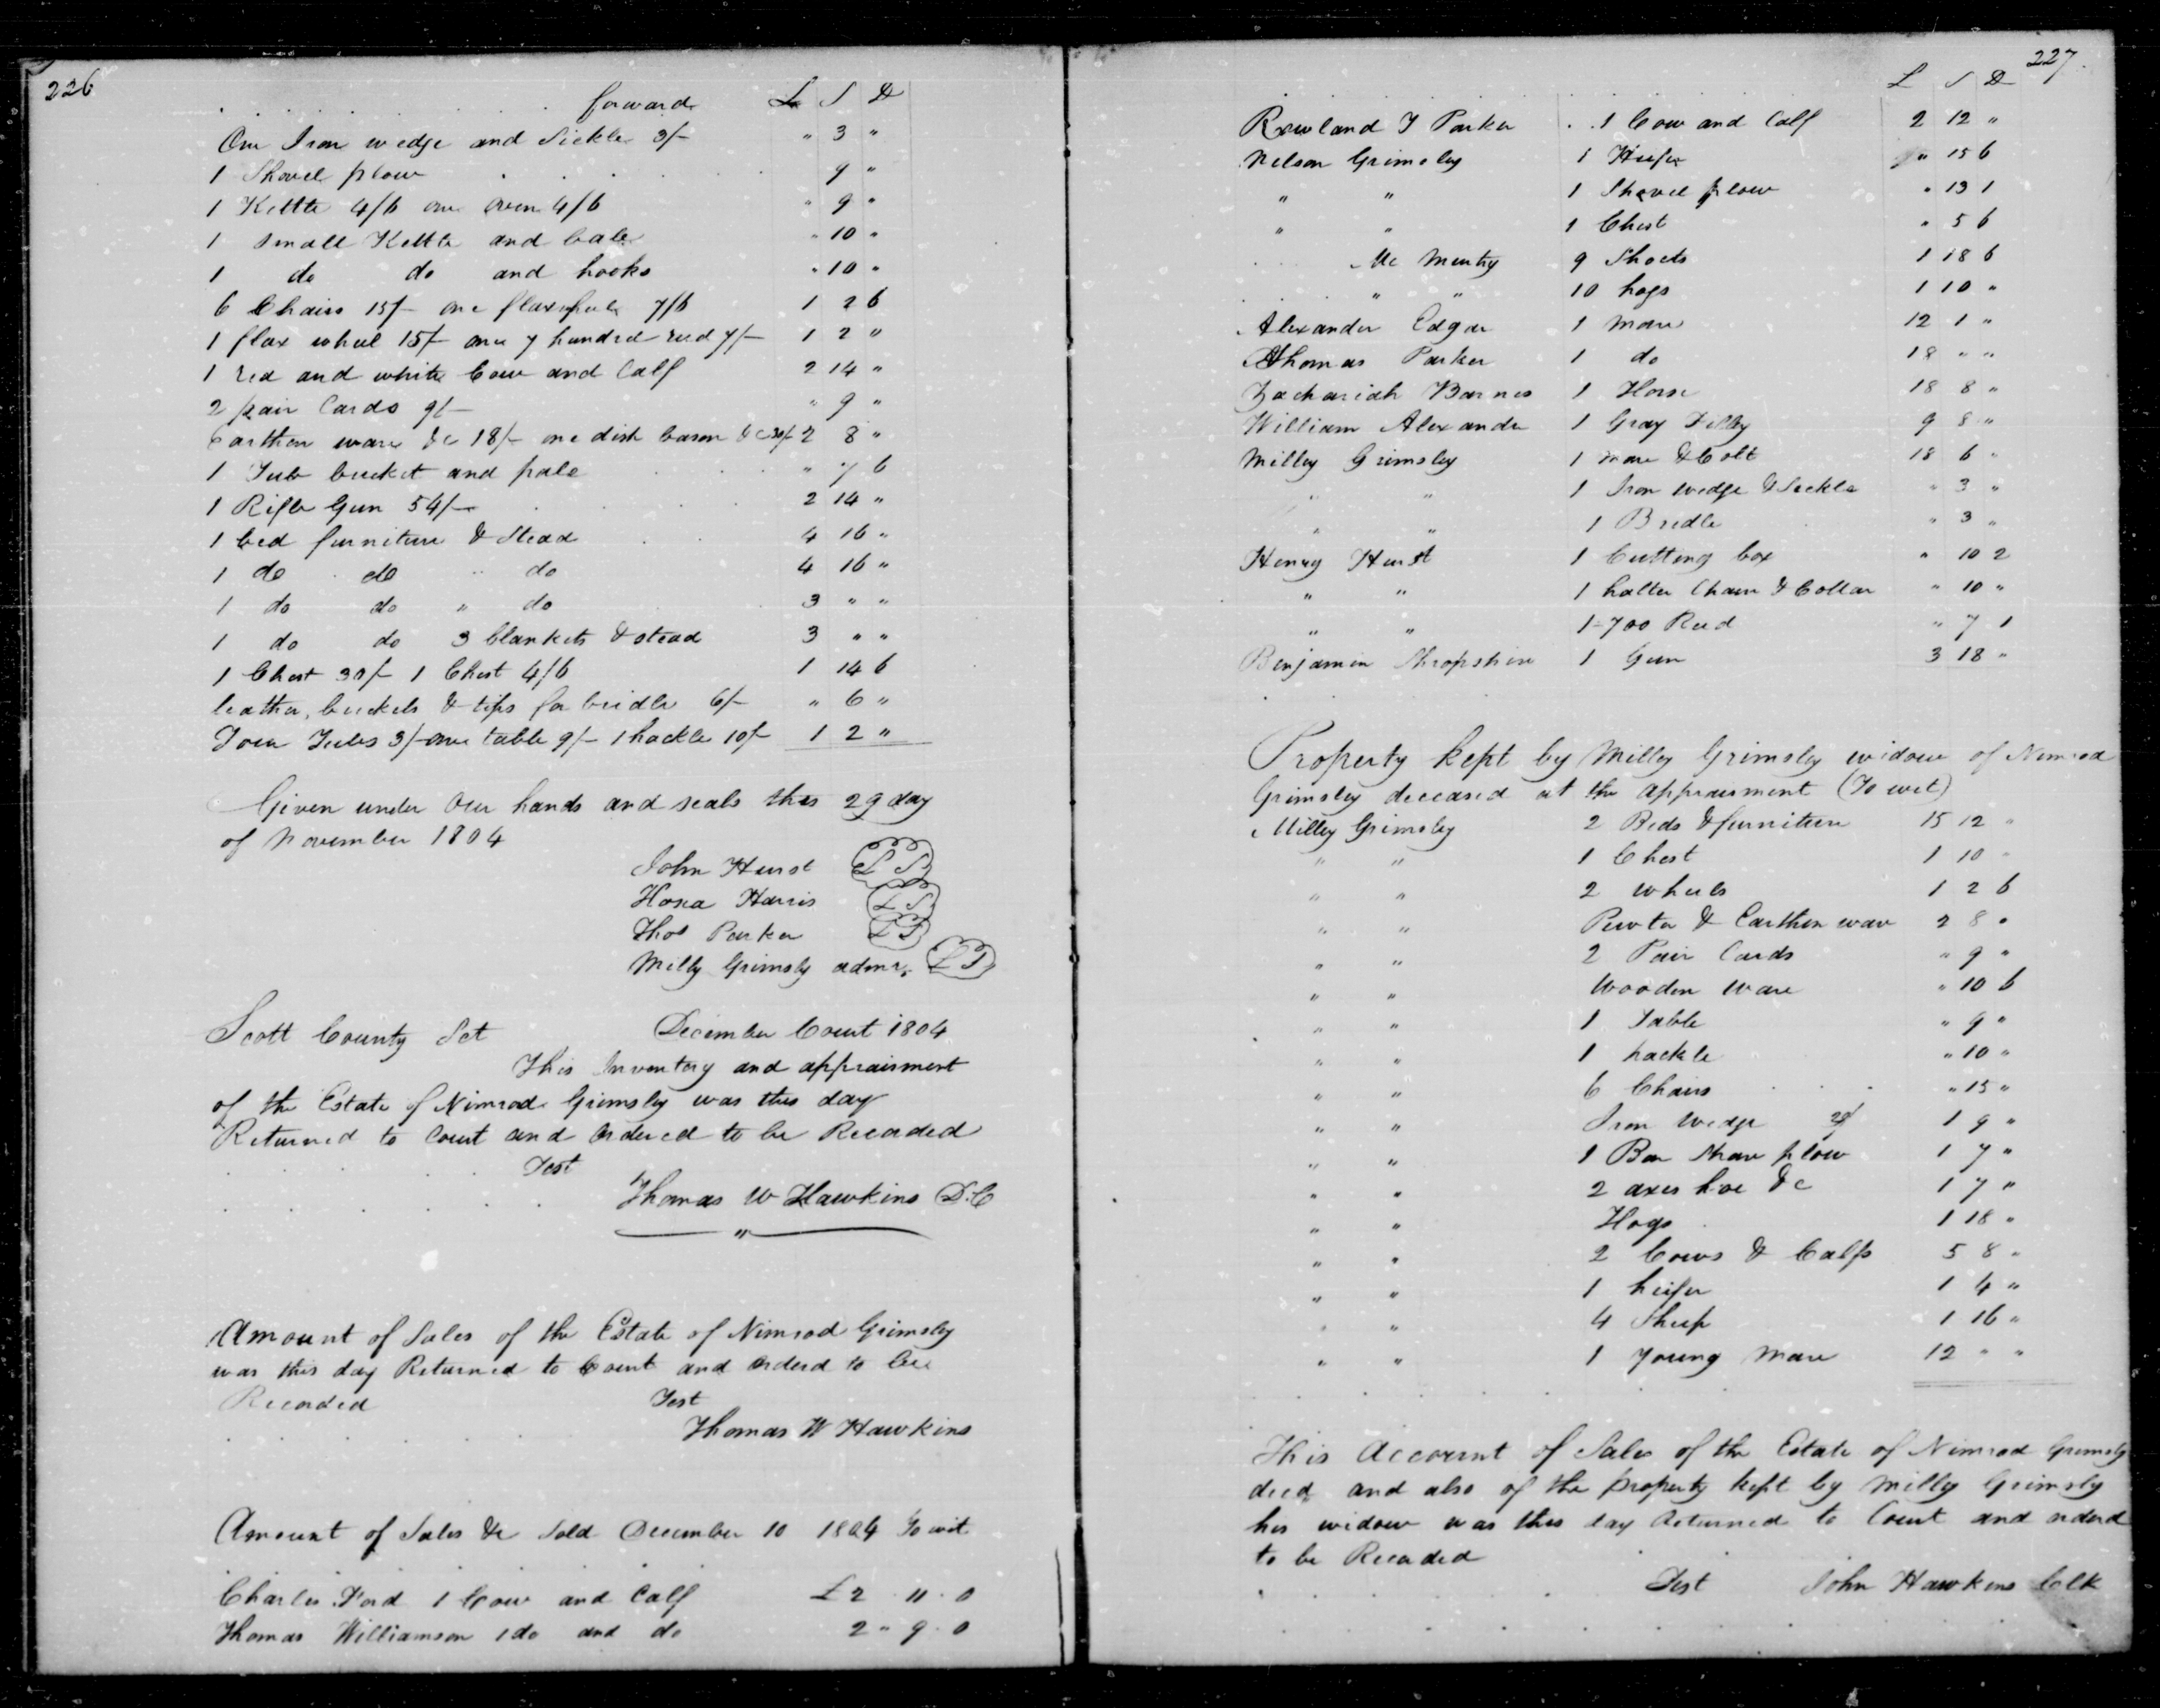 226
forward £ S D
One Iron wedge and Sickle 3/- " 3 "
1 Shovel plow 9 "
1 Kettle 4/6 one oven 4/6 " 9 "
1 Small Kettle and bale " 10 "
1 do do and hooks " 10 "
6 Chairs 15/- one 7/6 1 2 6
1 flax wheel 15/- one 7 hundred reed 7/- 1 2 "
1 red and white Cow and Calf 2 14 "
2 pair Cards 9/- " 9 "
Earthen ware &c 18/- one dish bason &c 30/- 2 8 "
1 Tub bucket and pale " 7 6
1 Rifle Gun 54/- 2 14 "
1 bed furniture & Stead 4 16 "
1 do do " do 4 16 "
1 do do " do 3 " "
1 do do 3 blankets & stead 3 " "
1 Chest 30/- 1 Chest 4/6 1 14 6
leather, buckels & tips for bridle 6/- " 6 "
Four Tubs 3/- one table 9/- 1 hackle 10/- 1 2 "
Given under our hands and seals this 29 day
of November 1804
John Hurst L S
Hosea Harris L S
Thos Parker L S
Milly Grimsly admr. L S
Scott County Sct December Court 1804
This Inventory and appraisment
of the Estate of Nimrod Grimsley was this day
Returned to Court and Ordered to be Recorded
Test
Thomas W Hawkins D.C
"
Amount of Sales of the Estate of Nimrod Grimsley
was this day Returned to Court and Orderd to be
Recorded Test
Thomas W Hawkins
Amount of Sales &c Sold December 10 1804 To wit
Charles Ford 1 Cow and Calf £ 2 . 11 . 0
Thomas Williamson 1 do and do 2 " 9 . 0
227
£ S D
Rowland T Parker 1 Cow and Calf 2 12 "
Nelson Grimsley 1 Heifer " 15 6
" " 1 Shovel plow " 13 1
" " 1 Chest " 5 6
Mc 9 Shoats 1 18 6
" " 10 hogs 1 10 "
Alexander Edgar 1 mare 12 1 "
Thomas Parker 1 do 18 " "
Zachariah Barnes 1 Horse 18 8 "
William Alexander 1 Gray Filley 9 8 "
Milley Grimsley 1 mare & Colt 18 6 "
" " 1 Iron wedge & Sickle " 3 "
" " 1 Bridle " 3 "
Henry Hurst 1 Cutting box " 10 2
" " 1 halter Chain & Collar " 10 "
" " 1-700 Reed " 7 1
Benjamin Shropshire 1 Gun 3 18 "
Property kept by Milley Grimsley widow of Nimrod
Grimsley deceased at the appraisment (To wit)
Milley Grimsley 2 Beds & furniture 15 12 "
" " 1 Chest 1 10 "
" " 2 wheels 1 2 6
" " Pewter & Earthen ware 2 8 "
" " 2 Pair Cards " 9 "
" " Wooden Ware " 10 6
" " 1 Table " 9 "
" " 1 hackle " 10 "
" " 6 Chairs " 15 "
" " Iron Wedge 1 9 "
" " 1 Bar Share plow 1 7 "
" " 2 axes hoe &c 1 7 "
" " Hogs 1 18 "
" " 2 Cows & Calfs 5 8 "
" " 1 heifer 1 4 "
" " 4 Sheep 1 16 "
" " 1 young Mare 12 " "
This Account of Sales of the Estate of Nimrod Grimsley
decd, and also of the property kept by Milley Grimsley
his widow was this day Returned to Court and orderd
to be Recorded
Test John Hawkins Clk